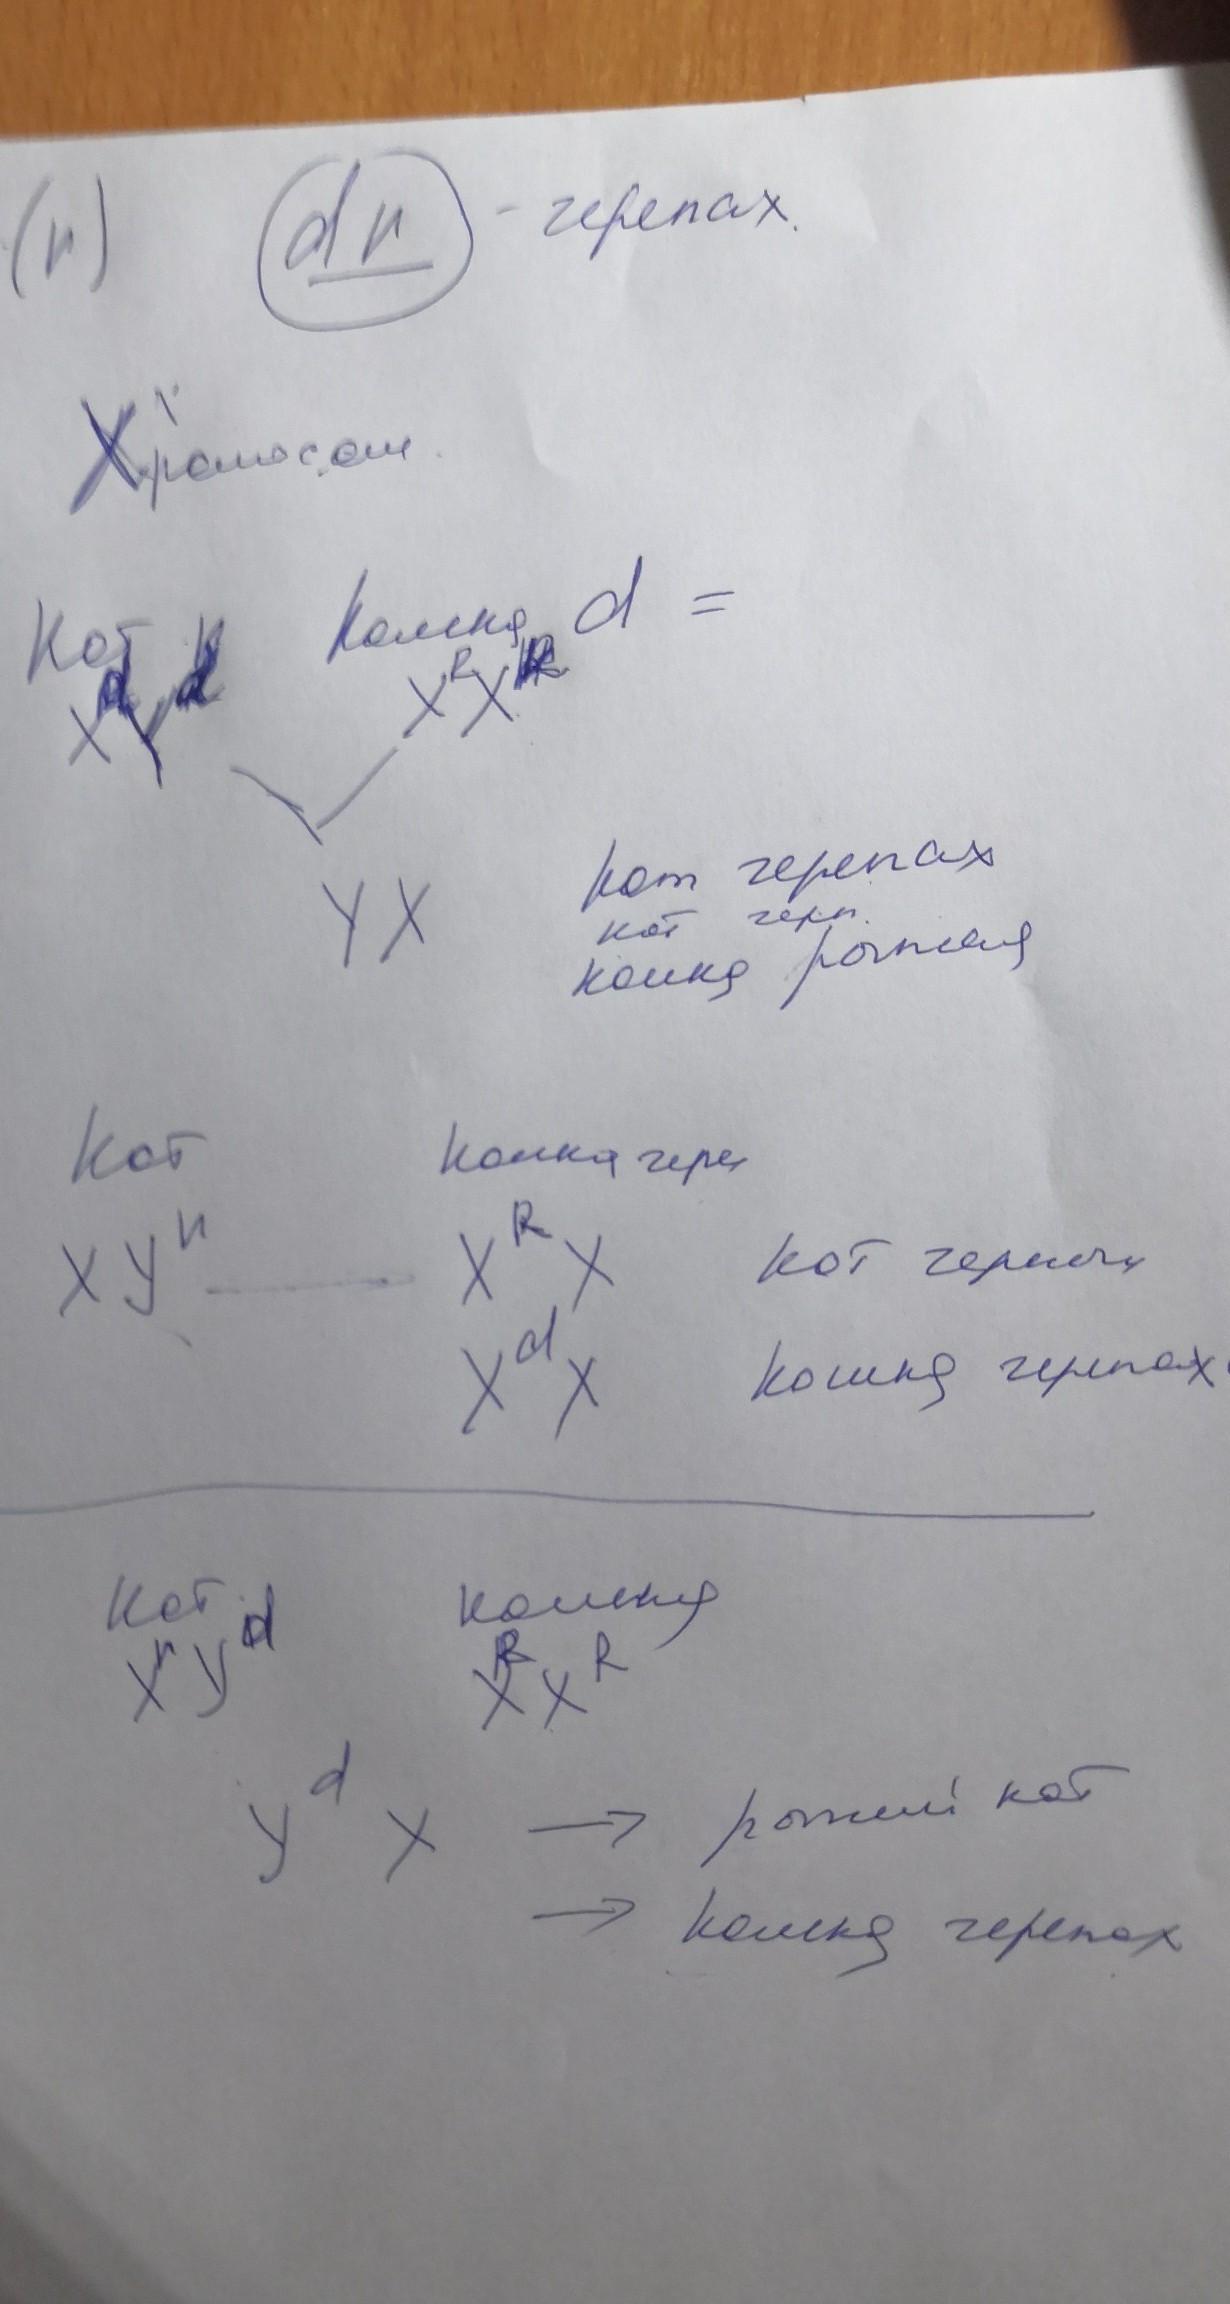 (н) dн - черепах.
Хромосом.
Кот Кошка d =
X Y X^R X
YX
кот черепах
кот череп.
кошка рыжая
Кот кошка чере
X У^н X^R X кот
X^d X кошка черепах
Кот кошка
X^н У^d X^R X^R
У^d X → рыжий кот
→ кошка черепах